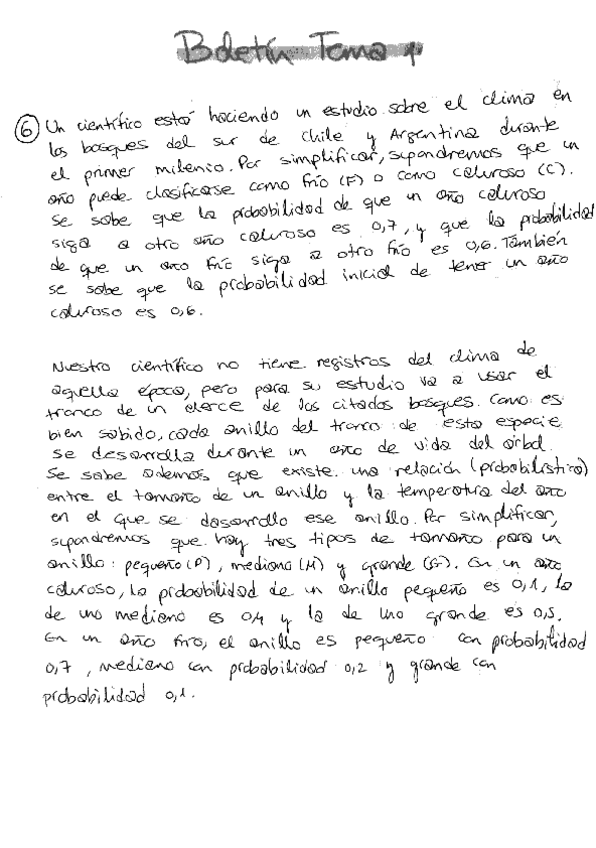 Boletín Tema 4
⑥ Un científico está haciendo un estudio sobre el clima en
los bosques del sur de Chile y Argentina durante
el primer milenio. Por simplificar, supondremos que un
año puede clasificarse como frío (F) o como caluroso (C).
Se sabe que la probabilidad de que un año caluroso
siga a otro año caluroso es 0,7, y que la probabilidad
de que un año frío siga a otro frío es 0,6. También
se sabe que la probabilidad inicial de tener un año
caluroso es 0,6.
Nuestro científico no tiene registros del clima de
aquella época, pero para su estudio va a usar el
tronco de un alerce de los citados bosques. Como es
bien sabido, cada anillo del tronco de esta especie
se desarrolla durante un año de vida del árbol.
Se sabe además que existe una relación (probabilística)
entre el tamaño de un anillo y la temperatura del año
en el que se desarrollo ese anillo. Por simplificar,
supondremos que hay tres tipos de tamaño para un
anillo: pequeño (P), mediano (M) y grande (G). En un año
caluroso, la probabilidad de un anillo pequeño es 0,1, la
de uno mediano es 0,4 y la de uno grande es 0,5.
En un año frío, el anillo es pequeño con probabilidad
0,7, mediano con probabilidad 0,2 y grande con
probabilidad 0,1.